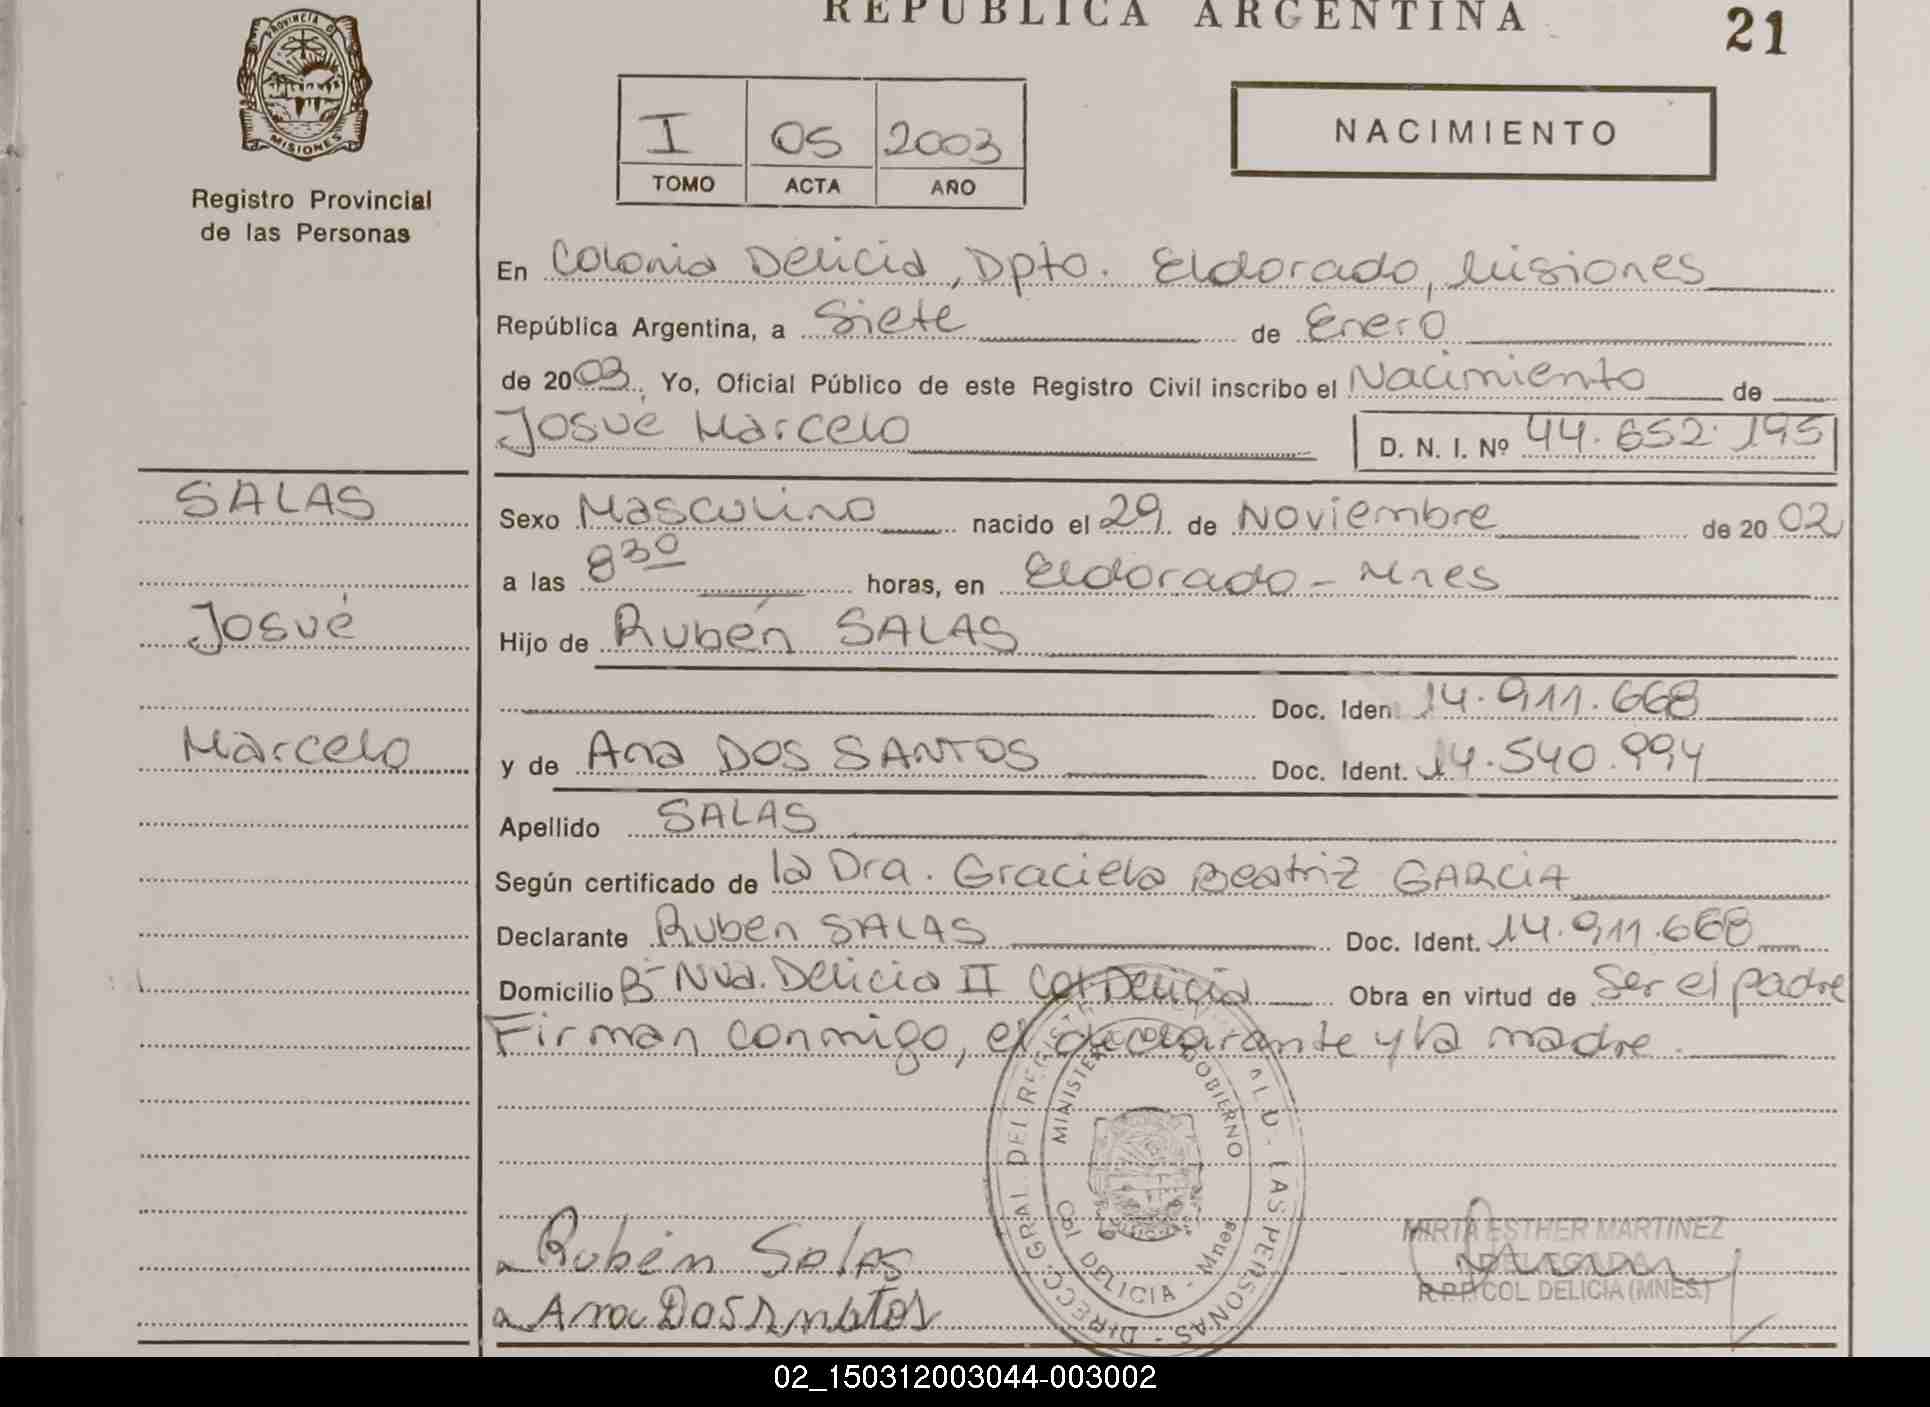 REPUBLICA ARGENTINA
21
PROVINCIA D
MISIONES
Registro Provincial
de las Personas
I 05 2003
TOMO ACTA AÑO
NACIMIENTO
En Colonia Delicia, Dpto. Eldorado, Misiones
República Argentina, a Siete de Enero
de 2003, Yo, Oficial Público de este Registro Civil inscribo el Nacimiento de
Josue Marcelo D. N. I. Nº 44.652.195
SALAS
Josué
Marcelo
Sexo Masculino nacido el 29 de Noviembre de 20 02
a las 8 30 horas, en Eldorado - Mnes
Hijo de Rubén SALAS
Doc. Iden 14.911.668
y de Ana DOS SANTOS Doc. Ident. 14.540.994
Apellido SALAS
Según certificado de la Dra. Graciela Beatriz GARCIA
Declarante Ruben SALAS Doc. Ident. 14.911.668
Domicilio B- Nva. Delicia II Col Delicia Obra en virtud de Ser el padre
Firman conmigo, el declarante y la madre.
DIRECC. GRAL DEL REGIST AL D. LAS PERSONAS
MINISTE GOBIERNO
Col DELICIA - Mnes
Rubén Salas
Ana Dos
MIRTA ESTHER MARTINEZ
DELEGADA
R.P.P. COL DELICIA (MNES.)
02_150312003044-003002